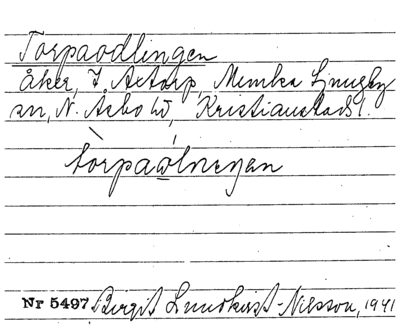 Torpaodlingen
Åker, I Axtorp, Munka Ljungby
sn, N. Åsbo hd, Kristianstads l.
tòrpaólneŋan
Nr 5497 Birgit Lundkvist-Nilsson, 1941